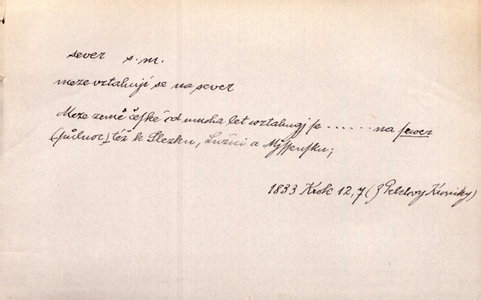 sever s. m.
meze vztahují se na sever
Meze země české od mnoha let wztahugj se ...... na sewer
(půlnoc) též k Slezku, Lužici a Mjssensku;
1833 Krok 12,7 (z Pelclovy Kroniky)